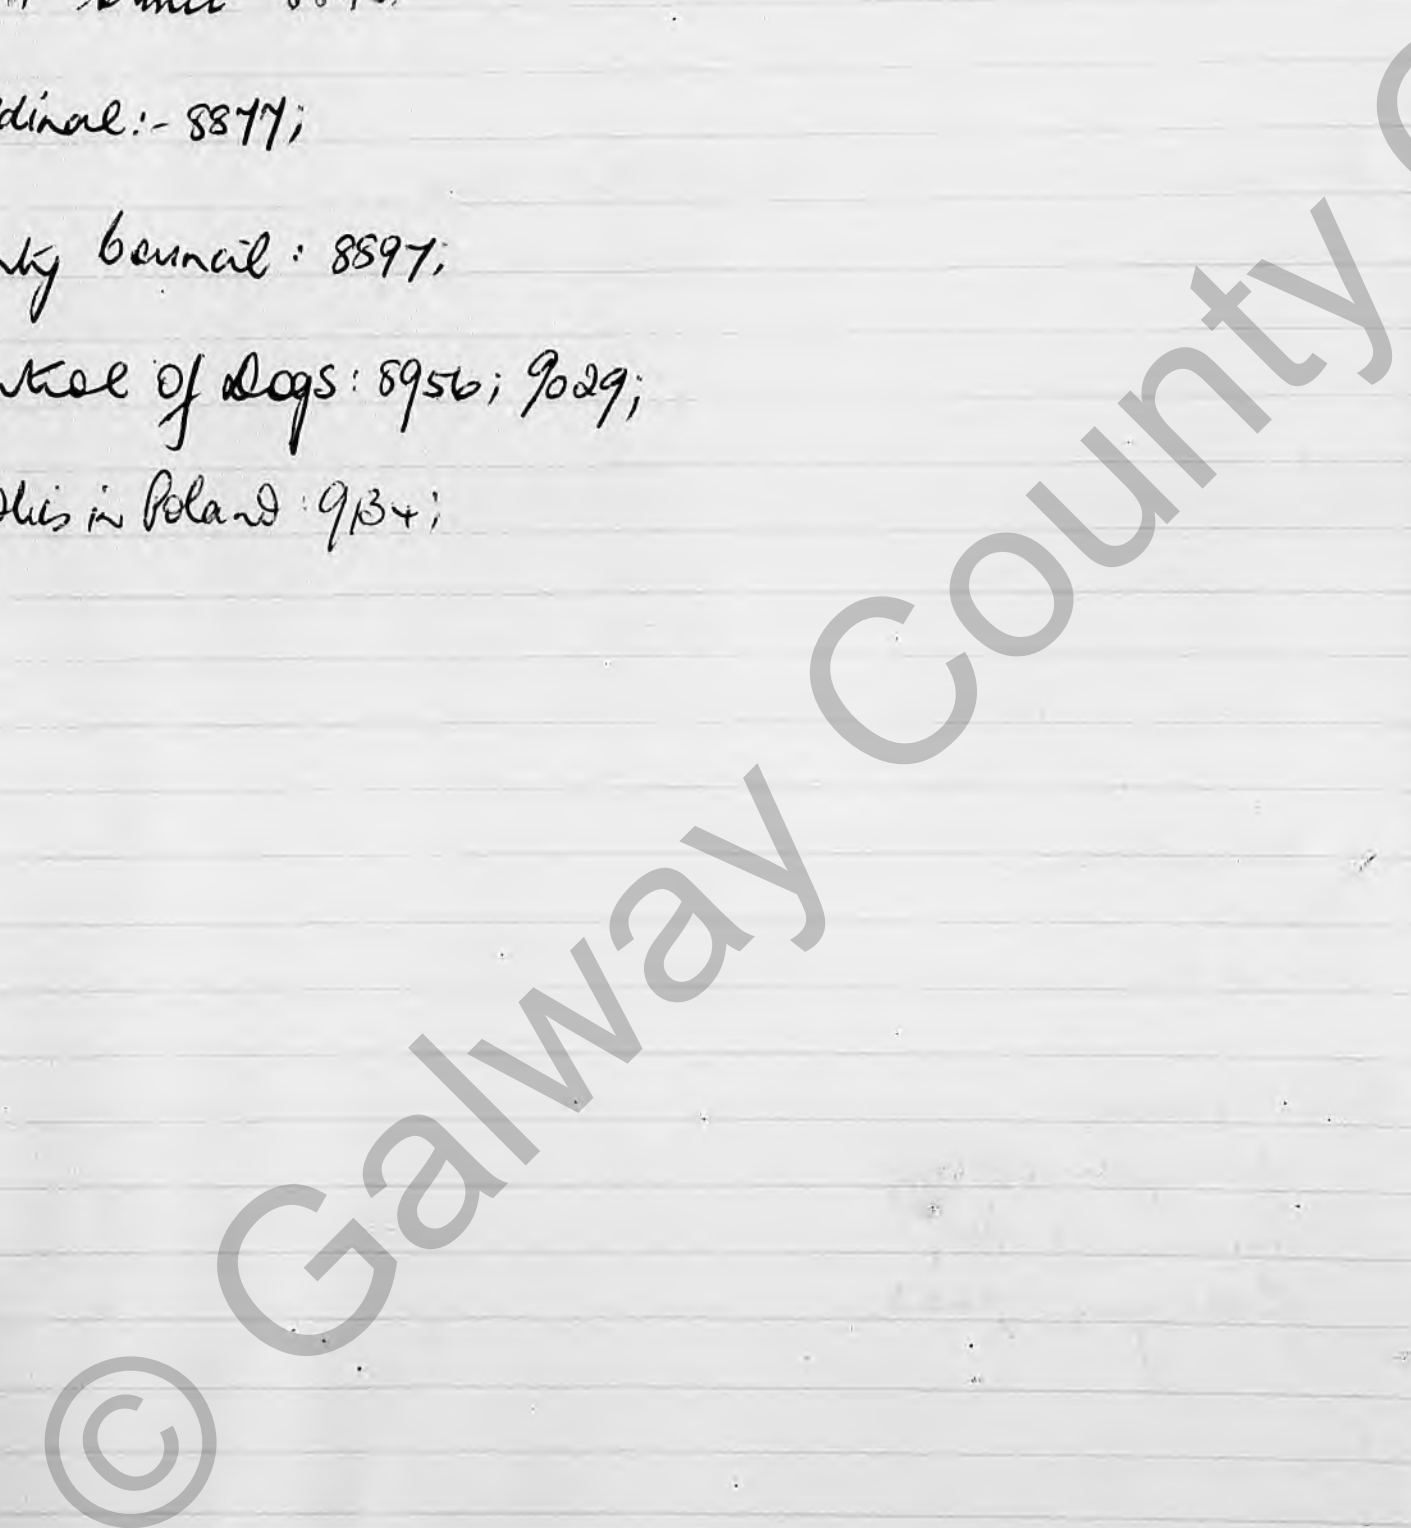 dinal:- 8877;
nty Council: 8897;
ntrol of Dogs: 8956; 9029;
olics in Poland: 9134;
© Galway County C